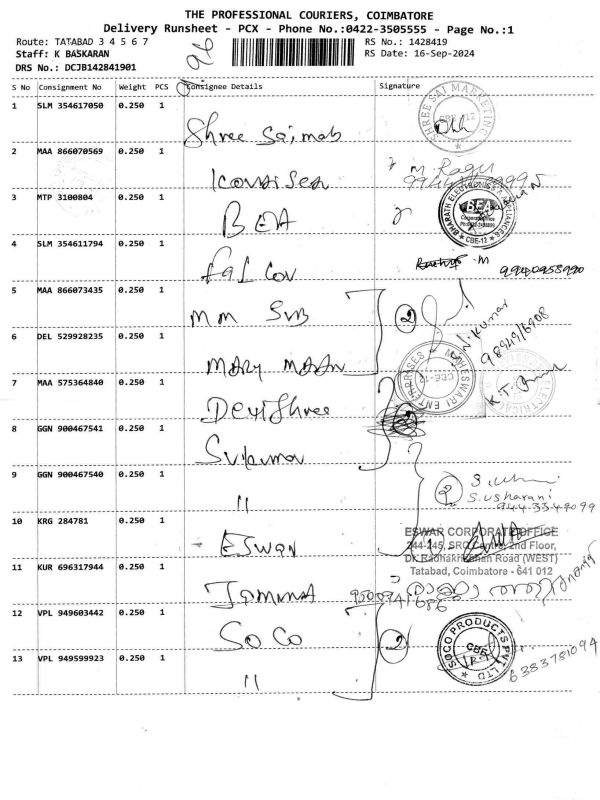 THE PROFESSIONAL COURIERS, COIMBATORE
Delivery Runsheet - PCX - Phone No.:0422-3505555 - Page No.:1
Route: TATABAD 3 4 5 6 7
RS No.: 1428419
Staff: K BASKARAN
RS Date: 16-Sep-2024
DRS No.: DCJB142841901
S No Consignment No Weight PCS Consignee Details Signature
1 SLM 354617050 0.250 1
Shree Sai mab
SHREE SAI MARKETING CBE-12
2 MAA 866070569 0.250 1
M. Ragu
3 MTP 3100804 0.250 1
BEA
BHARATH ELECTRONICS & APPLIANCES BEA CBE-12
4 SLM 354611794 0.250 1
Fal Cov
M 9940958990
5 MAA 866073435 0.250 1
MM SVB
2
N. Kumar
6 DEL 529928235 0.250 1
MARY MAAN
MAHESWARI ENTERPRISES CBE-12
7 MAA 575364840 0.250 1
Devi Shree
K.T.
8 GGN 900467541 0.250 1
Sukumar
9 GGN 900467540 0.250 1
"
2
S. Usharani
10 KRG 284781 0.250 1
ESWAN
ESWAR CORPORATE OFFICE
244-245, SRC Centre, 2nd Floor,
Dr. Radhakrishnan Road (WEST)
Tatabad, Coimbatore - 641 012
11 KUR 696317944 0.250 1
12 VPL 949603442 0.250 1
SOCO
2
SOCO PRODUCTS PVT LTD CBE
6383781094
13 VPL 949599923 0.250 1
"